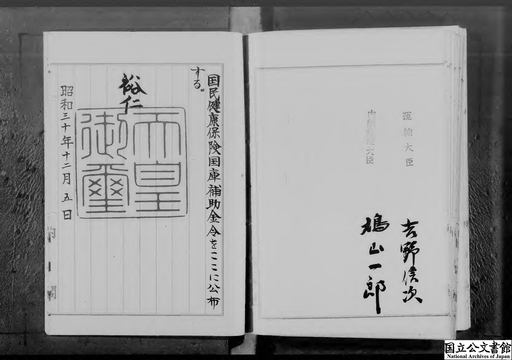 運輸大臣
吉野信次
内閣総理大臣
鳩山一郎
国民健康保険国庫補助金令をここに公布
する。
裕仁
天皇
御璽
昭和三十年十二月五日
国立公文書館
National Archives of Japan